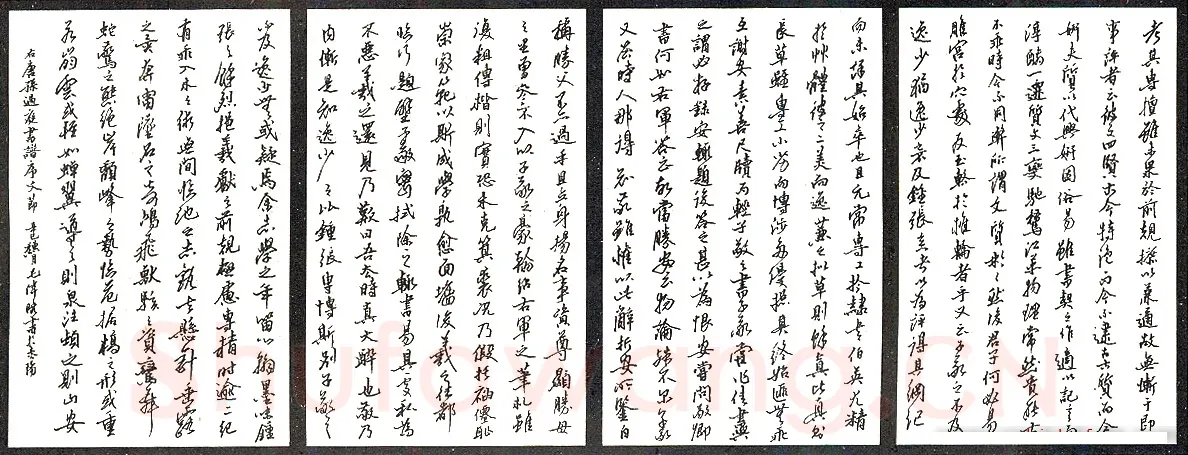 考其專擅雖未果於前規摭以兼通故無慚于即
事評者云彼之四賢古今特絕而今不逮古質而今
妍夫質以代興妍因俗易雖書契之作適以記言而
淳醨一遷質文三變馳騖沿革物理常然貴能古
不乖時今不同弊所謂文質彬彬然後君子何必易
雕宮於穴處反玉輅於椎輪者乎又云子敬之不及
逸少猶逸少之不及鍾張意者以為評得其綱紀
而未詳其始卒也且元常專工於隸書伯英尤精
於草體彼之二美而逸少兼之擬草則餘真比真則
長草雖專工小劣而博涉多優摠其終始匪無乖
互謝安素善尺牘而輕子敬之書子敬嘗作佳書與
之謂必存錄安輒題後答之甚以為恨安嘗問敬卿
書何如右軍答云故當勝安云物論殊不爾子敬
又答時人那得知敬雖權以此辭折安所鑒自
稱勝父不亦過乎且立身揚名事資尊顯勝母
之里曾參不入以子敬之豪翰紹右軍之筆札雖
復粗傳楷則實恐未克箕裘況乃假托神仙恥
崇家範以斯成學孰愈面墻後羲之往都
臨行題壁子敬密拭除之輒書易其處私為
不惡羲之還見乃歎曰吾去時真大醉也敬乃
內慚是知逸少之比鍾張專博斯別子敬之不
及逸少無或疑焉余志學之年留心翰墨味鍾
張之餘烈挹羲獻之前規極慮專精時逾二紀
有乖入木之術無間臨池之志觀夫懸針垂露
之異奔雷墜石之奇鴻飛獸駭之資鸞舞
蛇驚之態絕岸頹峰之勢臨危據槁之形或重
若崩雲或輕如蟬翼導之則泉注頓之則山安
右唐孫過庭書譜序文節
Shufawang.CN